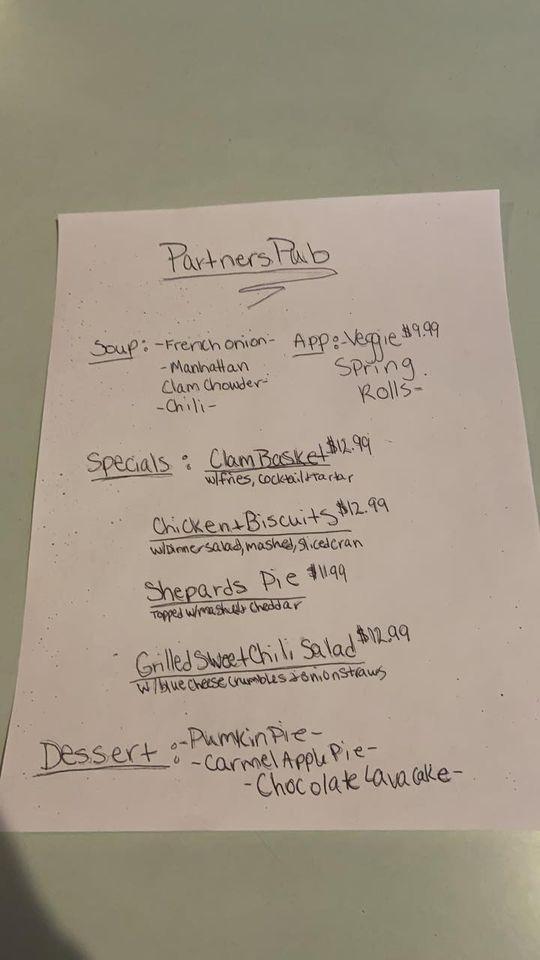 Partners Pub
Soup: -French onion-
-Manhattan
Clam Chowder-
-Chili-
App: -Veggie $9.99
Spring
Rolls-
Specials: Clam Basket $12.99
w/fries, cocktail+tartar
Chicken+Biscuits $12.99
w/Dinner salad, mashed, sliced cran
Shepards Pie $11.99
Topped w/mashed+cheddar
Grilled Sweet Chili Salad $12.99
w/blue cheese crumbles+onion straws
Dessert: -Pumkin Pie-
-Carmel Apple Pie-
-Chocolate Lava cake-